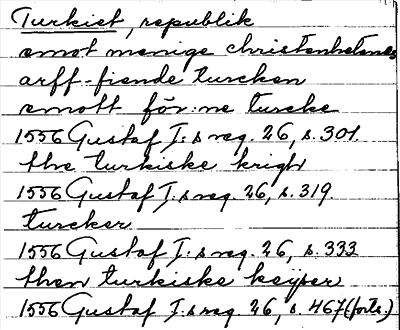 Turkiet, republik
emot menige christenhetenes
arff-fiende turcken
emott för:ne turcke
1556 Gustaf I:s reg. 26, s. 301.
the turkiske krigh
1556 Gustaf I:s reg. 26, s. 319.
turcker
1556 Gustaf I:s reg. 26, s. 333
then turkiske keyser
1556 Gustaf I:s reg. 26, s. 467 (forts.)